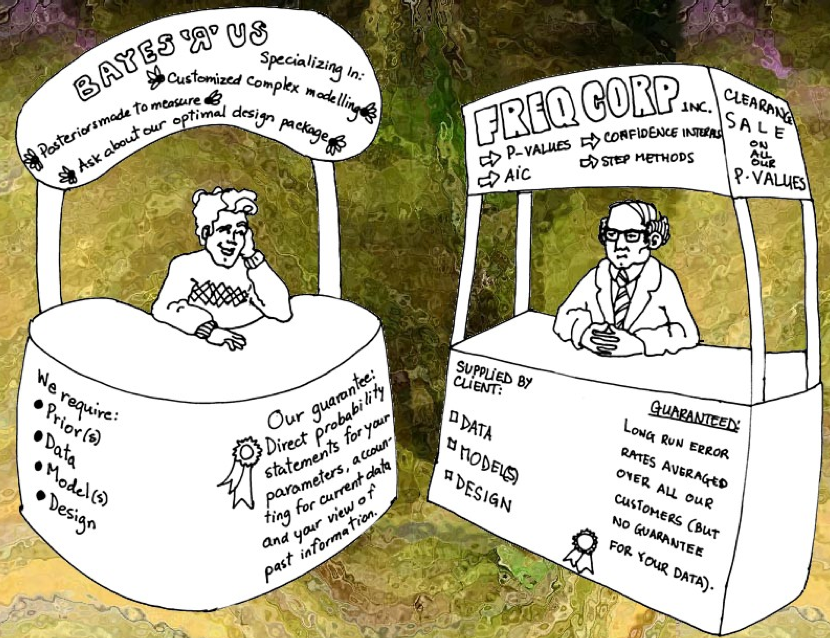 BAYES 'Я' US
Specializing In:
Customized complex modelling
Posteriors made to measure
Ask about our optimal design package
We require:
Prior(s)
Data
Model(s)
Design
Our guarantee:
Direct probability
statements for your
parameters, accoun-
ting for current data
and your view of
past information.
FREQ CORP INC.
P-VALUES
CONFIDENCE INTERVALS
AIC
STEP METHODS
CLEARANCE
SALE
ON
ALL
OUR
P-VALUES
SUPPLIED BY
CLIENT:
DATA
MODEL(S)
DESIGN
GUARANTEED:
LONG RUN ERROR
RATES AVERAGED
OVER ALL OUR
CUSTOMERS (BUT
NO GUARANTEE
FOR YOUR DATA).